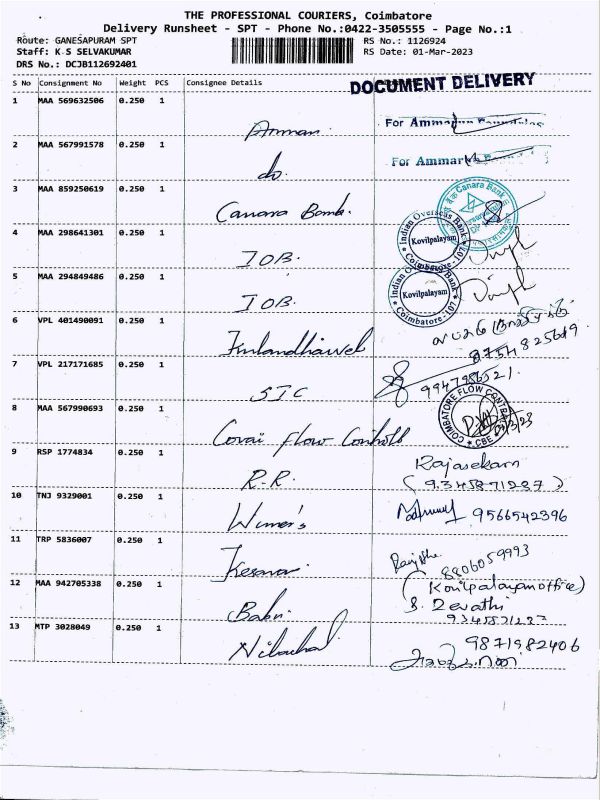 THE PROFESSIONAL COURIERS, Coimbatore
Delivery Runsheet - SPT - Phone No.:0422-3505555 - Page No.:1
Route: GANESAPURAM SPT
RS No.: 1126924
Staff: K S SELVAKUMAR
RS Date: 01-Mar-2023
DRS No.: DCJB112692401
S No Consignment No Weight PCS Consignee Details
DOCUMENT DELIVERY
1 MAA 569632506 0.250 1
Amman For Amman
2 MAA 567991578 0.250 1
do For Amman
3 MAA 859250619 0.250 1
Canara Bank. Canara Bank
4 MAA 298641301 0.250 1
IOB. Indian Overseas Bank Kovilpalayam Coimbatore - 107
5 MAA 294849486 0.250 1
IOB. Indian Overseas Bank Kovilpalayam Coimbatore - 107
6 VPL 401490091 0.250 1
8754825619
7 VPL 217171685 0.250 1
9947986521.
8 MAA 567990693 0.250 1
Covai Flow Controls COIMBATORE FLOW CONTROL CBE
9 RSP 1774834 0.250 1
R.R. Rajasekarn
(9345871237)
10 TNJ 9329001 0.250 1
9566542396
11 TRP 5836007 0.250 1
Kesavar 8806059993
12 MAA 942705338 0.250 1
(Kovilpalayam office)
Babu S. Revathi
9345871237
13 MTP 3028049 0.250 1
9871982406